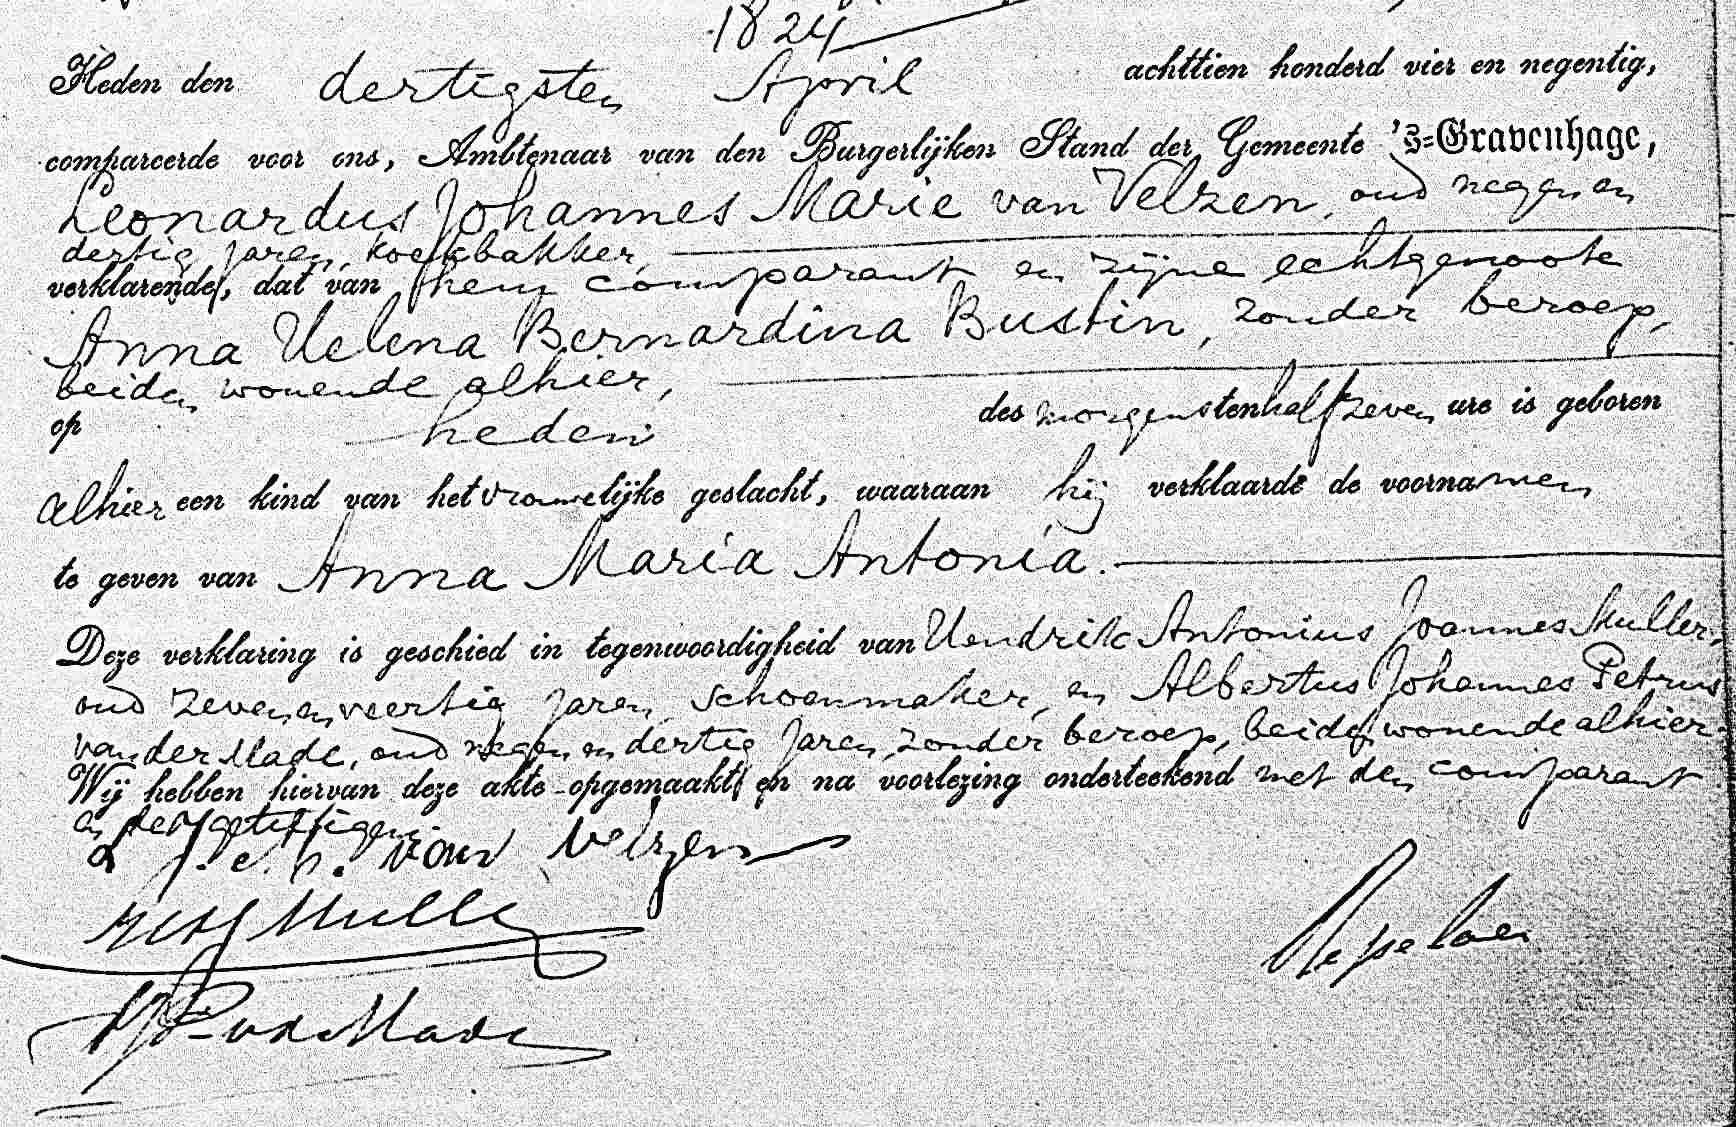 1824
Heden den dertigsten April achttien honderd vier en negentig,
compareerde voor ons, Ambtenaar van den Burgerlijken Stand der Gemeente 's=Gravenhage,
Leonardus Johannes Marie van Velzen, oud negen en
dertig jaren, koekbakker,
verklarende, dat van hem comparant en zijne echtgenoote
Anna Helena Bernardina Bustin, zonder beroep,
beiden wonende alhier,
op heden des morgens ten half zeven ure is geboren
alhier een kind van het vrouwelijke geslacht, waaraan hij verklaarde de voornamen
te geven van Anna Maria Antonia.
Deze verklaring is geschied in tegenwoordigheid van Hendrik Antonius Joannes Muller,
oud zeven en veertig jaren, schoenmaker, en Albertus Johannes Petrus
van der Made, oud negen en dertig jaren, zonder beroep, beiden wonende alhier.
Wij hebben hiervan deze akte opgemaakt en na voorlezing onderteekend met den comparant
en de getuigen.
van Velzen
Muller
vd Made